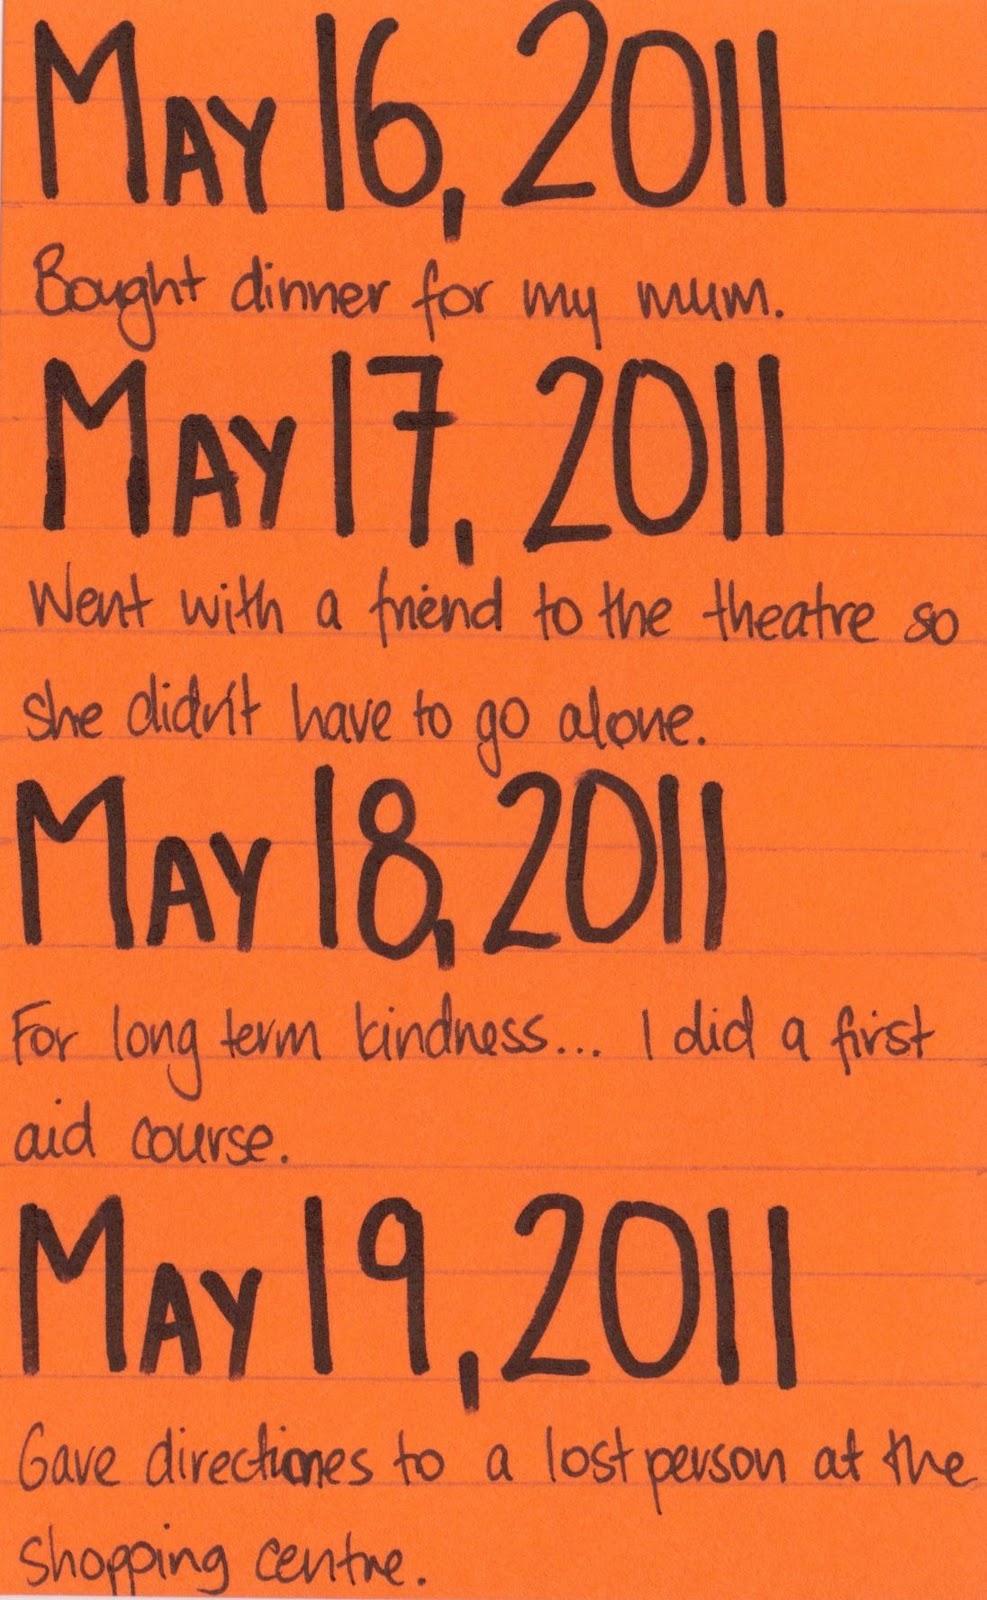 May 16, 2011
Bought dinner for my mum.
May 17, 2011
Went with a friend to the theatre so
she didn't have to go alone.
May 18, 2011
For long term kindness... I did a first
aid course.
May 19, 2011
Gave directiones to a lost person at the
shopping centre.